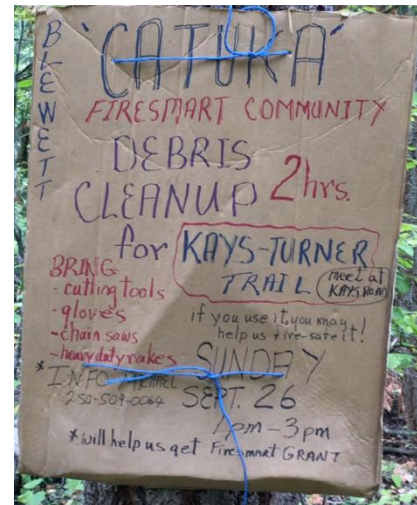 BLEWETT
'CATUKA'
FIRESMART COMMUNITY
DEBRIS
CLEANUP 2hrs.
for KAYS-TURNER
TRAIL (meet at
KAYS ROAD)
BRING
- cutting tools
- gloves
- chain saws
- heavy duty rakes
if you use it, you may
help us fire-safe it!
* INFO MICHAEL
250-509-0064
SUNDAY
SEPT. 26
1pm-3pm
* will help us get Firesmart GRANT